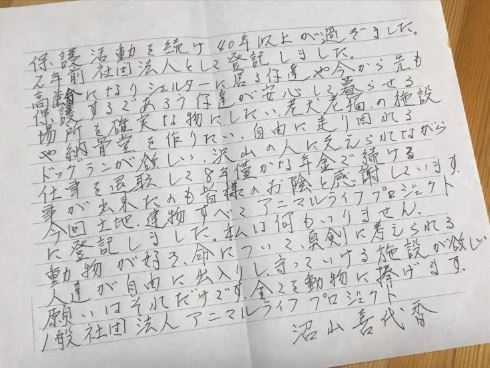 保護活動を続け40年以上が過ぎました。
2年前 社団法人として登記しました。
高齢になりシェルターに居る保達や今から先も
保護するであろう保達が安心して暮らせる
場所を確実な物にしたい、老犬老猫の施設
や納骨堂を作りたい、自由に走り回れる
ドックランが餘しい、沢山の人に支えられながら
仕事を退職して8年僅かな年金で続ける
事が出来たのも皆様のお陰と感謝しています.
今回土地、建物すべてアニマルライフプロジェクト
に登記しました。私は何もいりません.
動物が好き、命について、真剣に考えられる
人達が自由に出入りし、守っていける施設が餘しい
願いはそれだけです.全てを動物に捧げます.
一般社団法人アニマルライフプロジェクト
沼山喜代香